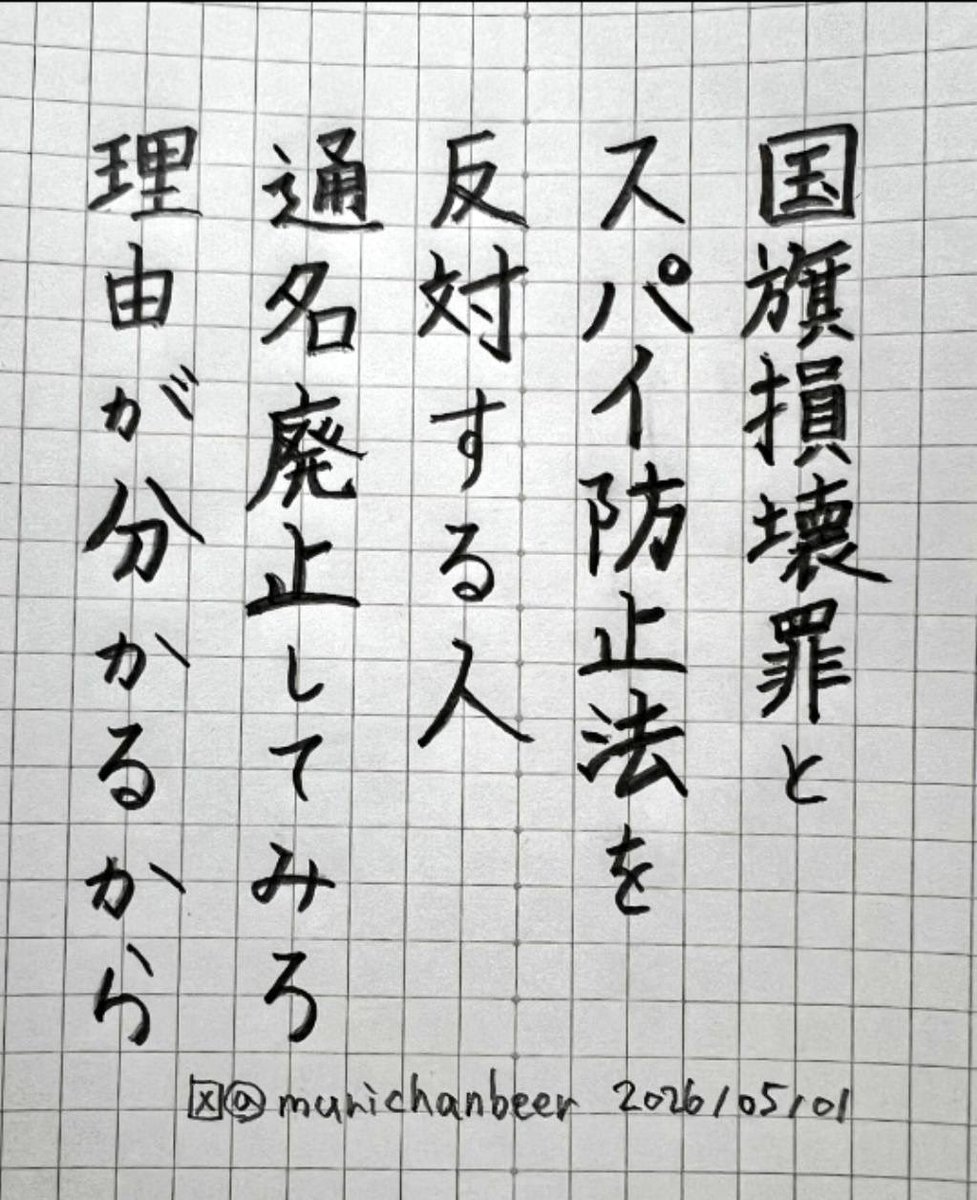 国旗損壊罪と
スパイ防止法を
反対する人
通名廃止してみろ
理由が分かるから
X@munichanbeer 2026/05/01